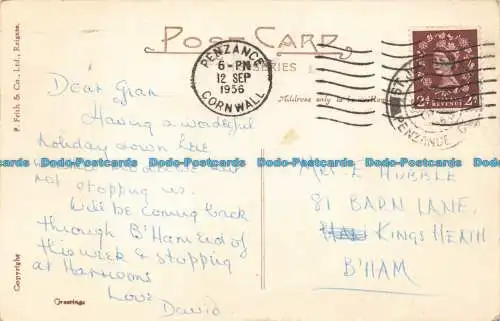 POST CARD
SERIES
Address only to be written
PENZANCE
6-PM
12 SEP
1956
CORNWALL
PENZANCE
REVENUE
2D 2D
P. Frith & Co., Ltd., Reigate.
Copyright
Dear Gran
Having a wonderful
holiday down here
not stopping us.
Will be coming back
through B'Ham end of
this week & stopping
at Harrisons
Love
David
Greetings
MRS. E HUBBLE
81 BARN LANE,
KINGS HEATH
B'HAM
Dodo-Postcards Dodo-Postcards Dodo-Postcards Dodo-Postcards Dodo-Postcards Dodo-Postcards